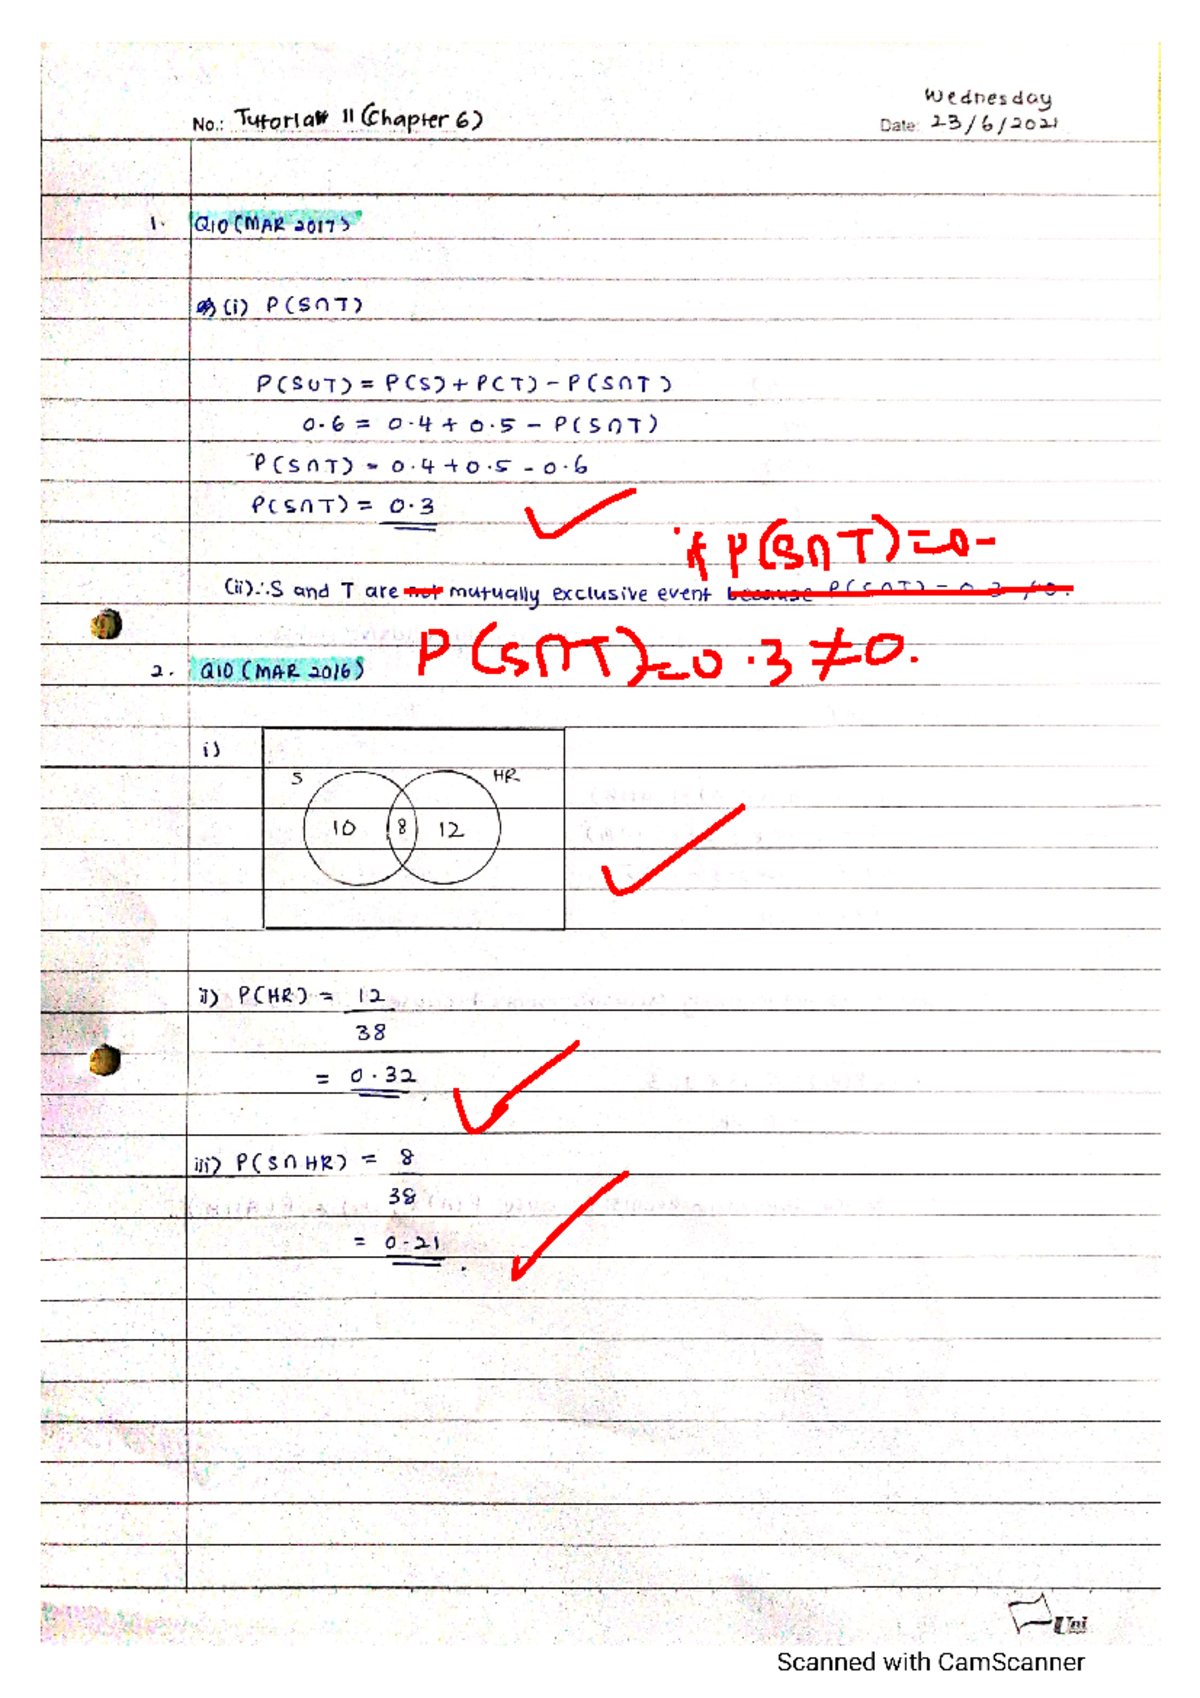 Wednesday
No.: Tutorial 11 (Chapter 6)
Date: 23/6/2021
1. Q10 (MAR 2017)
(i) P(S∩T)
P(S∪T) = P(S) + P(T) - P(S∩T)
0.6 = 0.4 + 0.5 - P(S∩T)
P(S∩T) = 0.4 + 0.5 - 0.6
P(S∩T) = 0.3
if P(S∩T)=0-
(ii) ∴ S and T are not mutually exclusive event because P(S∩T) = 0.3 ≠ 0.
P(S∩T)=0.3≠0.
2. Q10 (MAR 2016)
i)
S HR
10 8 12
ii) P(HR) = 12
38
= 0.32
iii) P(S∩HR) = 8
38
= 0.21
Uni
Scanned with CamScanner